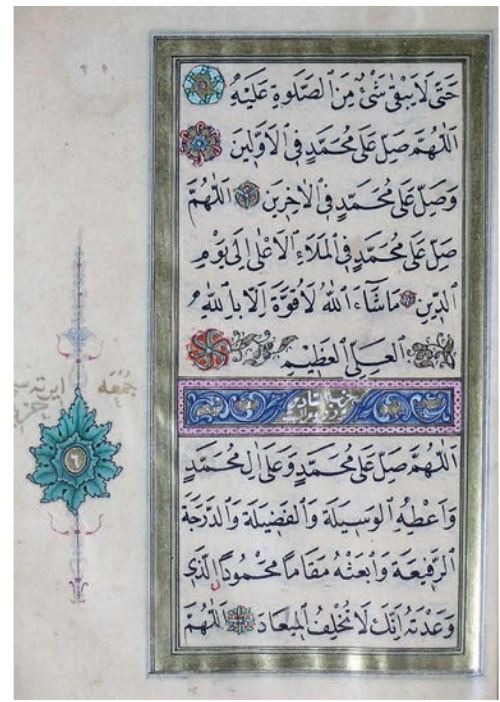 حَتّٰى لَا يَبْقٰى شَىْءٌ مِنَ ٱلصَّلٰوةِ عَلَيْهِ
اَللّٰهُمَّ صَلِّ عَلٰى مُحَمَّدٍ فِى ٱلْاَوَّلِينَ
وَصَلِّ عَلٰى مُحَمَّدٍ فِى ٱلْاٰخِرِينَ اَللّٰهُمَّ
صَلِّ عَلٰى مُحَمَّدٍ فِى ٱلْمَلَاءِ ٱلْاَعْلٰى اِلٰى يَوْمِ
ٱلدِّينِ مَاشَٓاءَ ٱللّٰهُ لَاقُوَّةَ اِلَّا بِٱللّٰهِ
ٱلْعَلِىِّ ٱلْعَظِيْمِ
اَللّٰهُمَّ صَلِّ عَلٰى مُحَمَّدٍ وَعَلٰى اٰلِ مُحَمَّدٍ
وَاَعْطِهِ ٱلْوَسِيلَةَ وَٱلْفَضِيلَةَ وَٱلدَّرَجَةَ
ٱلرَّفِيعَةَ وَٱبْعَثْهُ مَقَامًا مَحْمُودًا ٱلَّذِى
وَعَدْتَهُ اِنَّكَ لَا تُخْلِفُ ٱلْمِيعَادَ اَللّٰهُمَّ
جمعه
٦